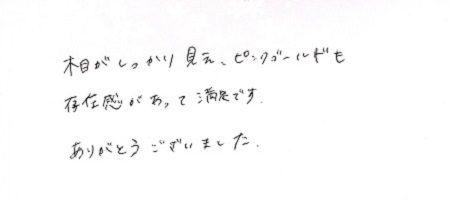 木目がしっかり見え、ピンクゴールドも
存在感があって満足です.
ありがとうございました.